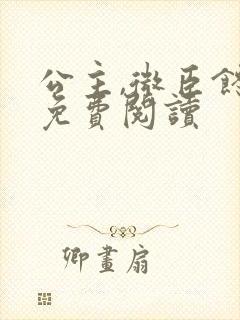 公主,微臣餓
免費閱讀
卿畫扇